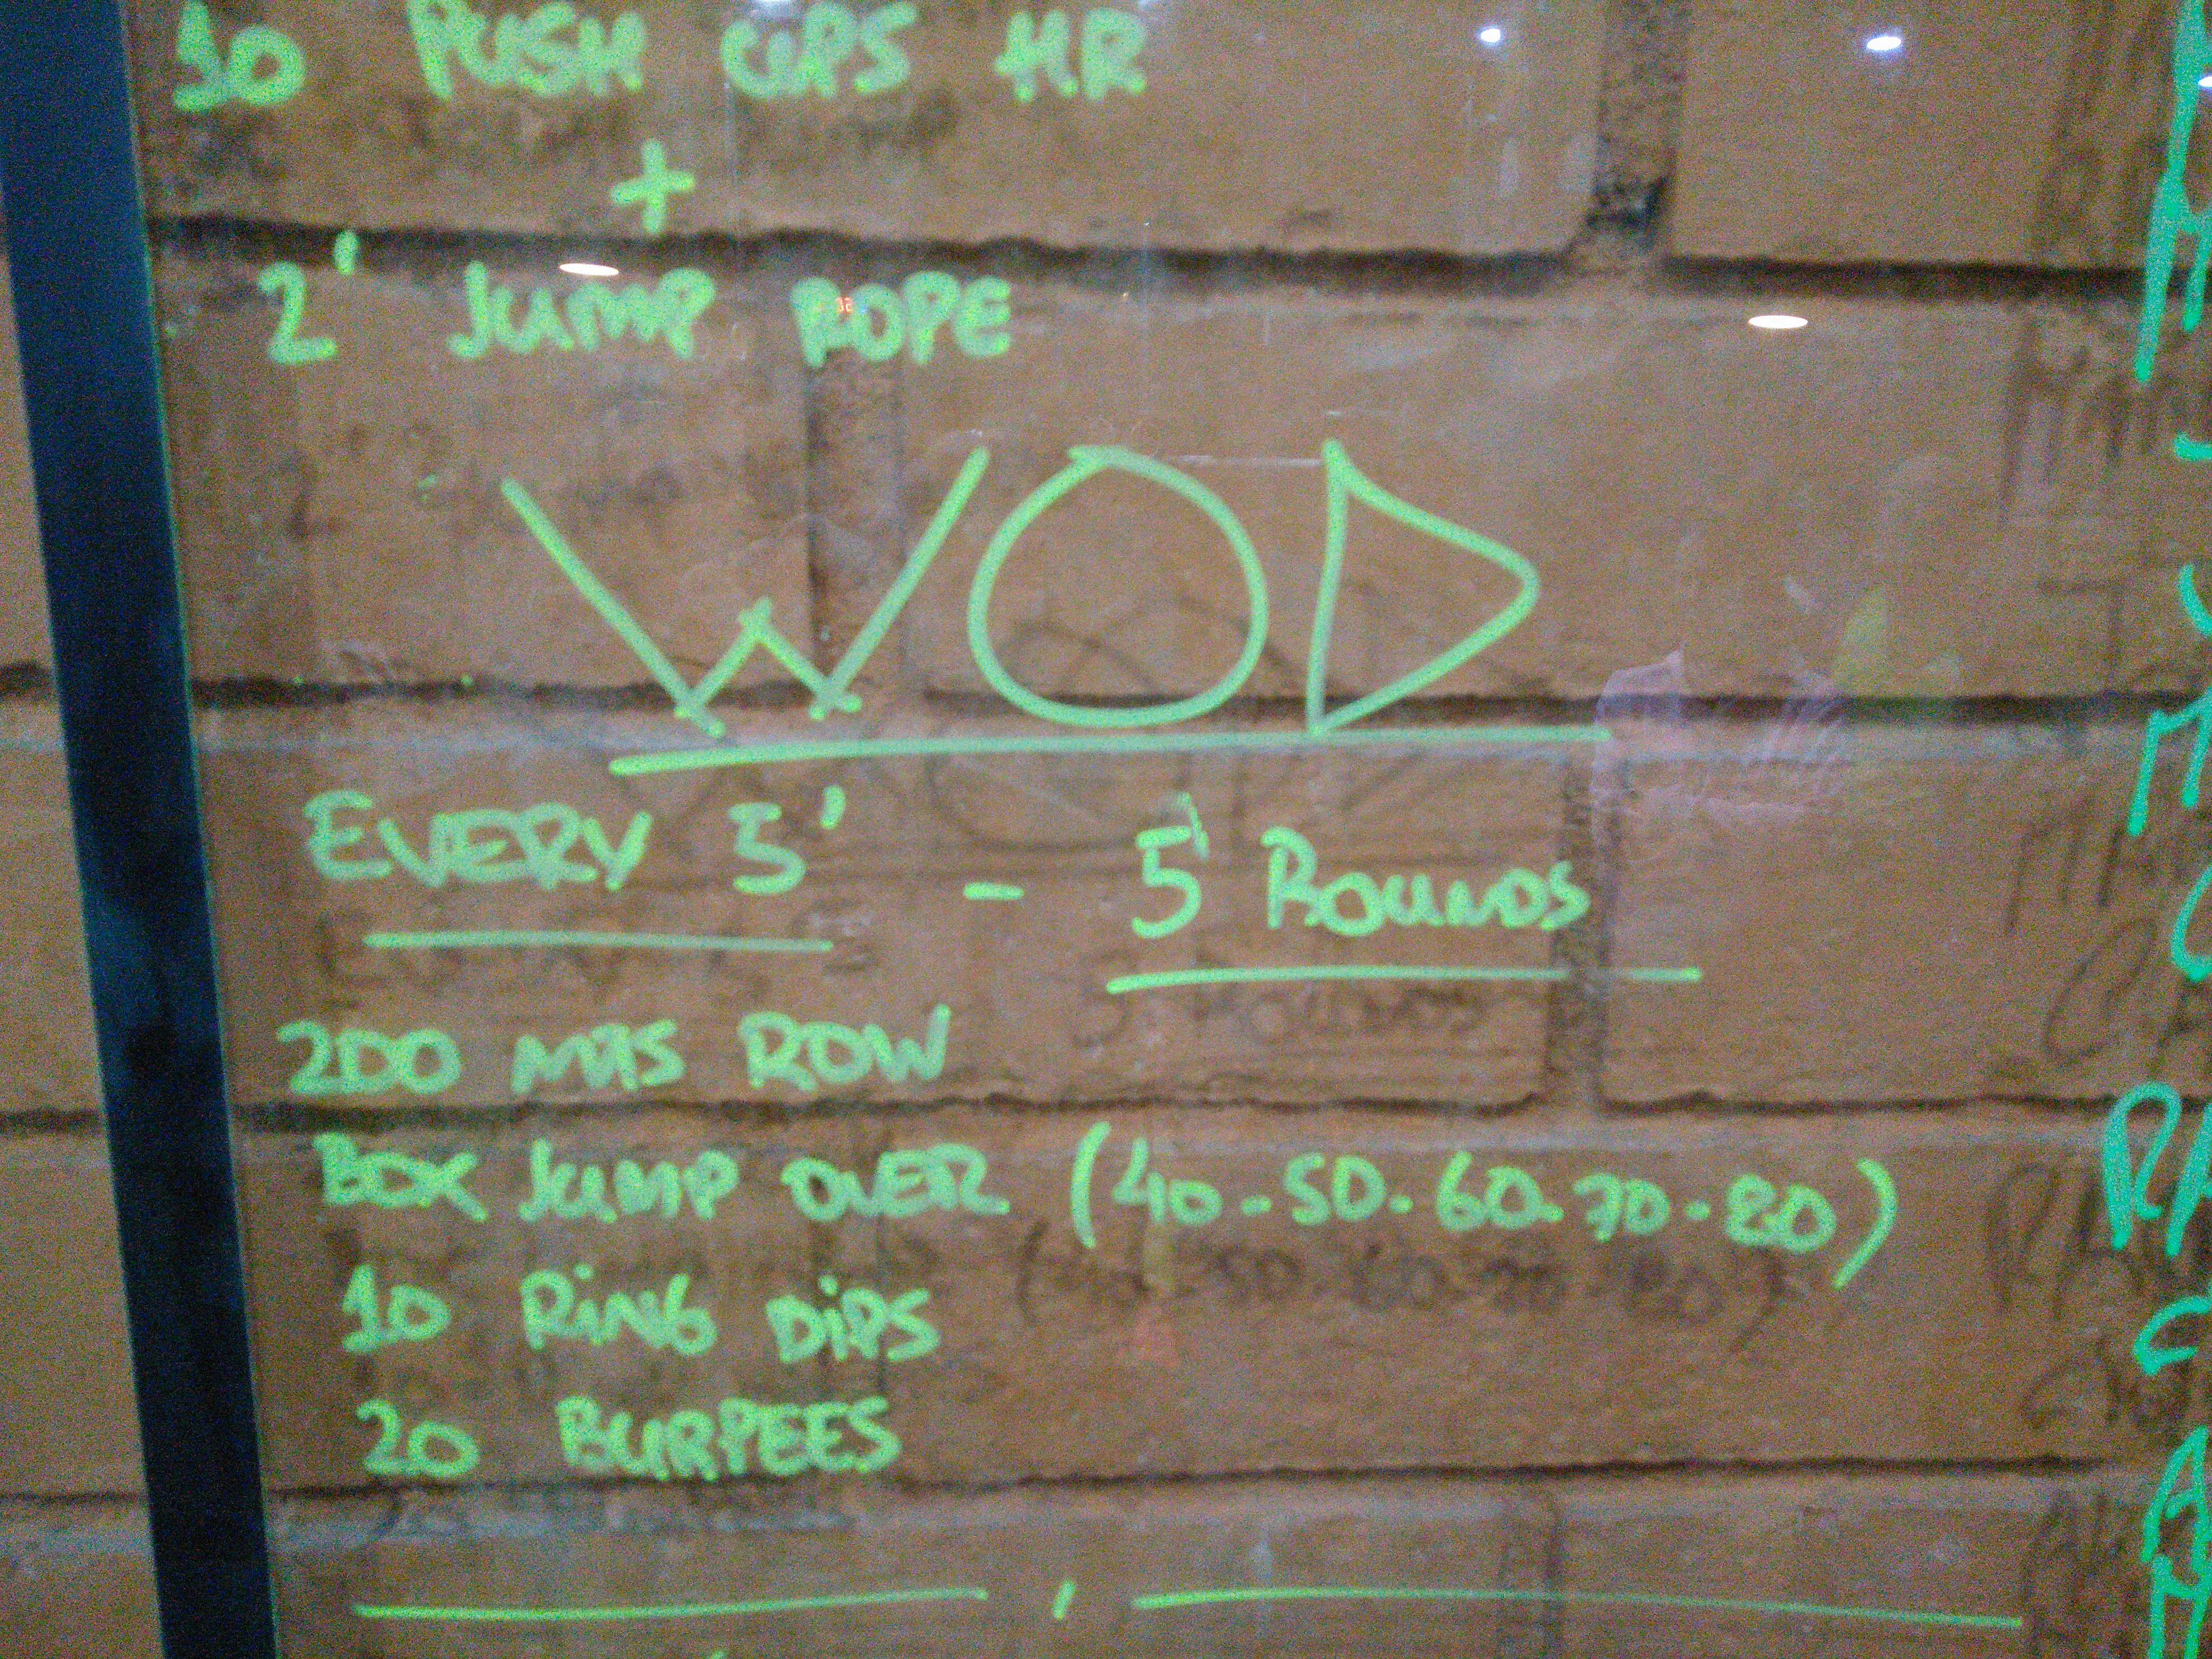 10 PUSH UPS HR
+
2' JUMP ROPE
WOD
EVERY 5' - 5 ROUNDS
200 MTS ROW
BOX JUMP OVER (40-50-60-70-80)
10 RING DIPS
20 BURPEES